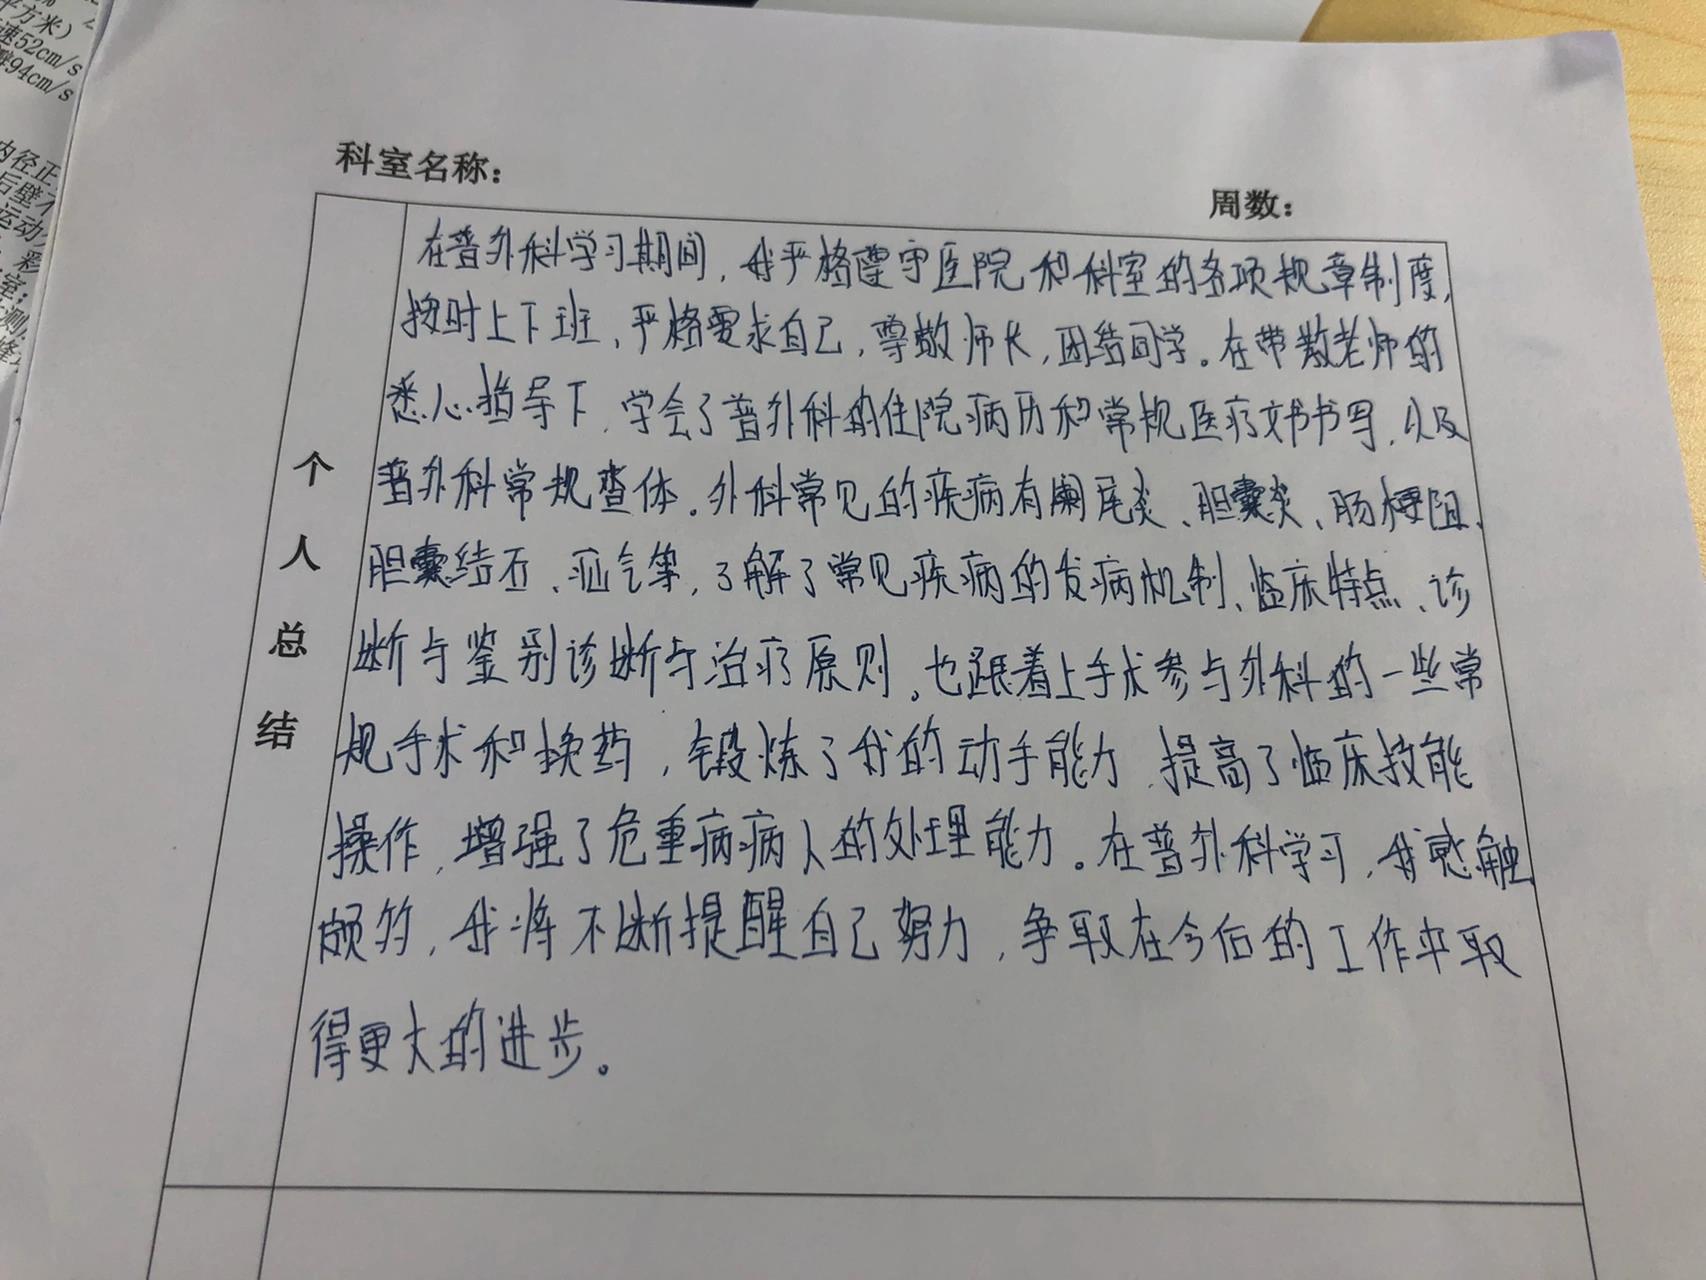 平方米）
速52cm/s
瓣94cm/s
内径正
后壁
运动
彩
室；
测
科室名称：
周数：
个人总结
在普外科学习期间，我严格遵守医院和科室的各项规章制度，
按时上下班，严格要求自己，尊敬师长，团结同学。在带教老师的
悉心指导下，学会了普外科的住院病历和常规医疗文书书写，以及
普外科常规查体。外科常见的疾病有阑尾炎、胆囊炎、肠梗阻、
胆囊结石、疝气等，了解了常见疾病的发病机制、临床特点、诊
断与鉴别诊断与治疗原则。也跟着上手术参与外科的一些常
规手术和换药，锻炼了我的动手能力，提高了临床技能
操作，增强了危重病病人的处理能力。在普外科学习，我感触
颇多，我将不断提醒自己努力，争取在今后的工作中取
得更大的进步。